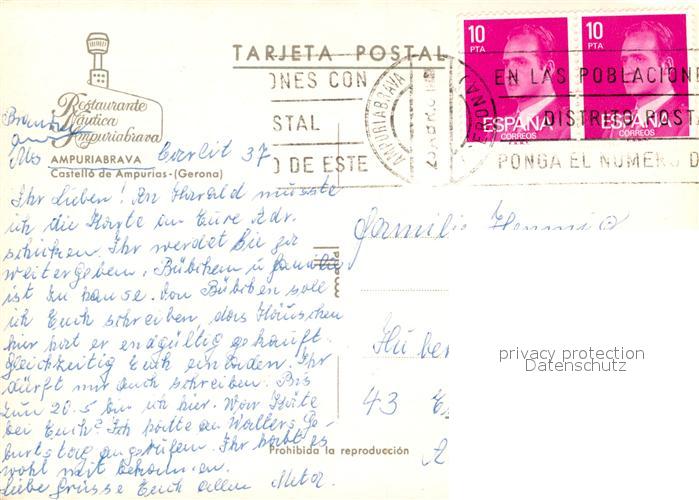 TARJETA POSTAL
10 PTA
10 PTA
ESPAÑA
CORREOS
ESPAÑA
CORREOS
ONES CON
STAL
O DE ESTE
AMPURIABRAVA
GERONA
EN LAS POBLACIONE
DISTRITO POSTA
PONGA EL NUMERO D
Restaurante
Náutica
Ampuriabrava
AMPURIABRAVA
Castelló de Ampurias-(Gerona)
37
Ihr Lieben! An Harald musste
ich die Karte an Eure Adr.
schicken. Ihr werdet sie ja
weitergeben. Bübchen u. Familie
ist zu hause. Von Bübchen soll
ich Euch schreiben, das Häuschen
hier hat er endgültig gekauft.
Gleichzeitig Euch einladen. Ihr
dürft mir auch schreiben. Bis
zum 20.5 bin ich hier. War Käte
bei Euch? Ich hatte an Walters Ge-
burtstag angerufen. Ihr habt es
wohl mit bekommen.
Liebe Grüsse Euch allen
Familie
43
Prohibida la reproducción
privacy protection
Datenschutz